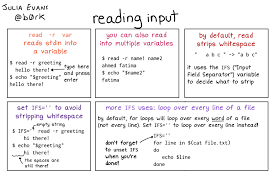 JULIA EVANS
@b0rk
reading input
read -r var
reads stdin into
a variable
$ read -r greeting
hello there!
type here
and press
enter
$ echo "$greeting"
hello there!
you can also read
into multiple variables
$ read -r name1 name2
ahmed fatima
$ echo "$name2"
fatima
by default, read
strips whitespace
" a b c " -> "a b c"
it uses the IFS ("Input
Field Separator") variable
to decide what to strip
set IFS='' to avoid
stripping whitespace
empty string
$ IFS='' read -r greeting
hi there!
$ echo "$greeting"
hi there!
the spaces are
still there!
more IFS uses: loop over every line of a file
by default, for loops will loop over every word of a file
(not every line). Set IFS='' to loop over every line instead!
don't forget
to unset IFS
when you're
done!
IFS=''
for line in $(cat file.txt)
do
echo $line
done